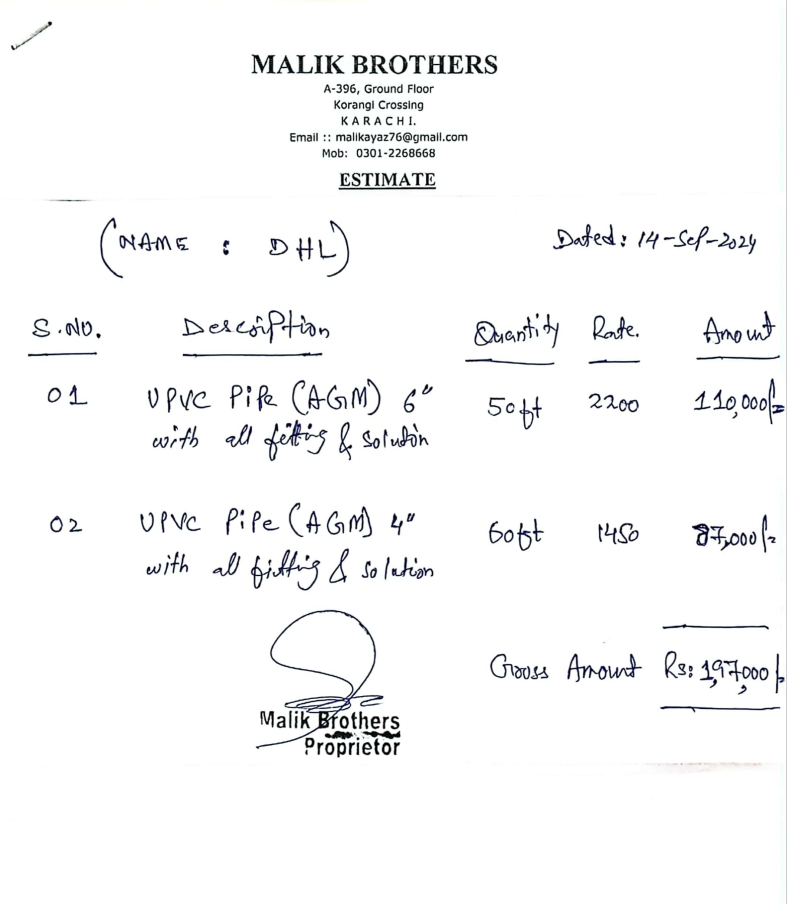 MALIK BROTHERS
A-396, Ground Floor
Korangi Crossing
KARACHI.
Email :: malikayaz76@gmail.com
Mob: 0301-2268668
ESTIMATE
(NAME : DHL) Dated: 14-Sep-2024
S.NO. Description Quantity Rate. Amount
01 UPVC Pipe (AGM) 6" 50ft 2200 110,000/=
with all fitting & solution
02 UPVC Pipe (AGM) 4" 60ft 1450 87,000/=
with all fitting & solution
Gross Amount Rs: 1,97,000/-
Malik Brothers
Proprietor